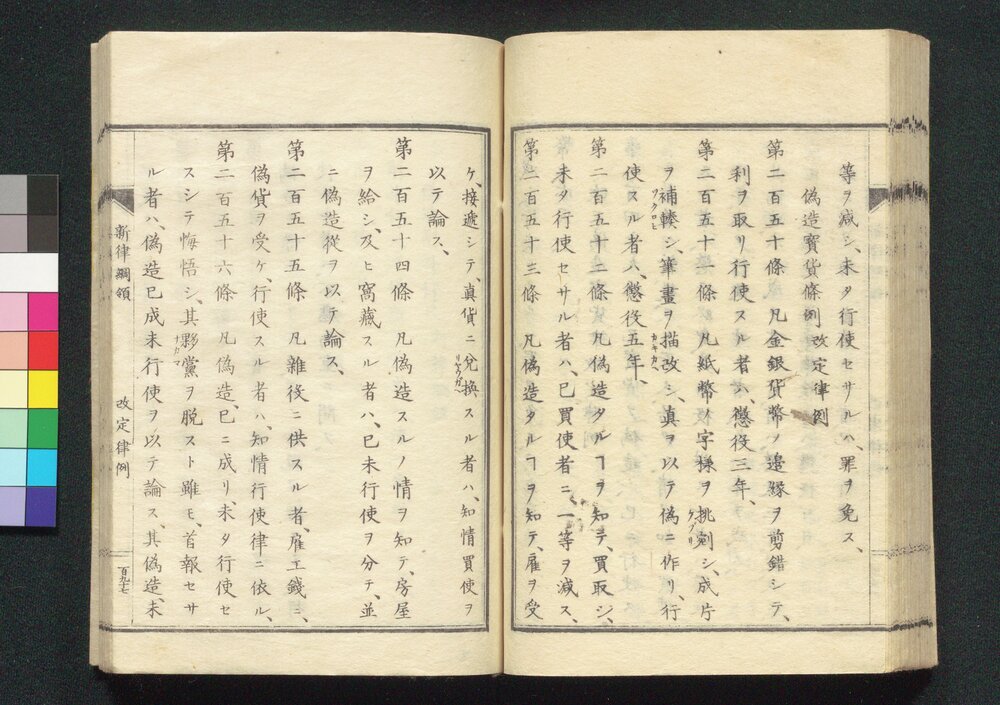 等ヲ減シ、未タ行使セサルハ、罪ヲ免ス、
偽造寳貨條例 改定律例
第二百五十條 凡金銀貨幣ノ邉縁ヲ剪錯シテ、
利ヲ取リ行使スル者ハ、懲役三年、
第二百五十一條 凡紙幣ノ字様ヲ挑剜シ、成片
ヲ補輳シ、筆畫ヲ描改シ、真ヲ以テ偽ニ作リ、行
使スル者ハ、懲役五年、
第二百五十二條 凡偽造タルヿヲ知テ、買取シ、
未タ行使セサル者ハ、已買使者ニ一等ヲ減ス、
第二百五十三條 凡偽造タルヿヲ知テ、雇ヲ受
ケ、接遞シテ、真貨ニ兌換スル者ハ、知情買使ヲ
以テ論ス、
第二百五十四條 凡偽造スルノ情ヲ知テ、房屋
ヲ給シ、及ヒ窩藏スル者ハ、已未行使ヲ分テ、並
ニ偽造從ヲ以テ論ス、
第二百五十五條 凡雜役ニ供スル者、雇工錢ニ、
偽貨ヲ受ケ、行使スル者ハ、知情行使律ニ依ル、
第二百五十六條 凡偽造、已ニ成リ、未タ行使セ
スシテ悔悟シ、其夥黨ヲ脱スト雖モ、首報セサ
ル者ハ、偽造已成未行使ヲ以テ論ス、其偽造、未
新律綱領 改定律例 百九十七